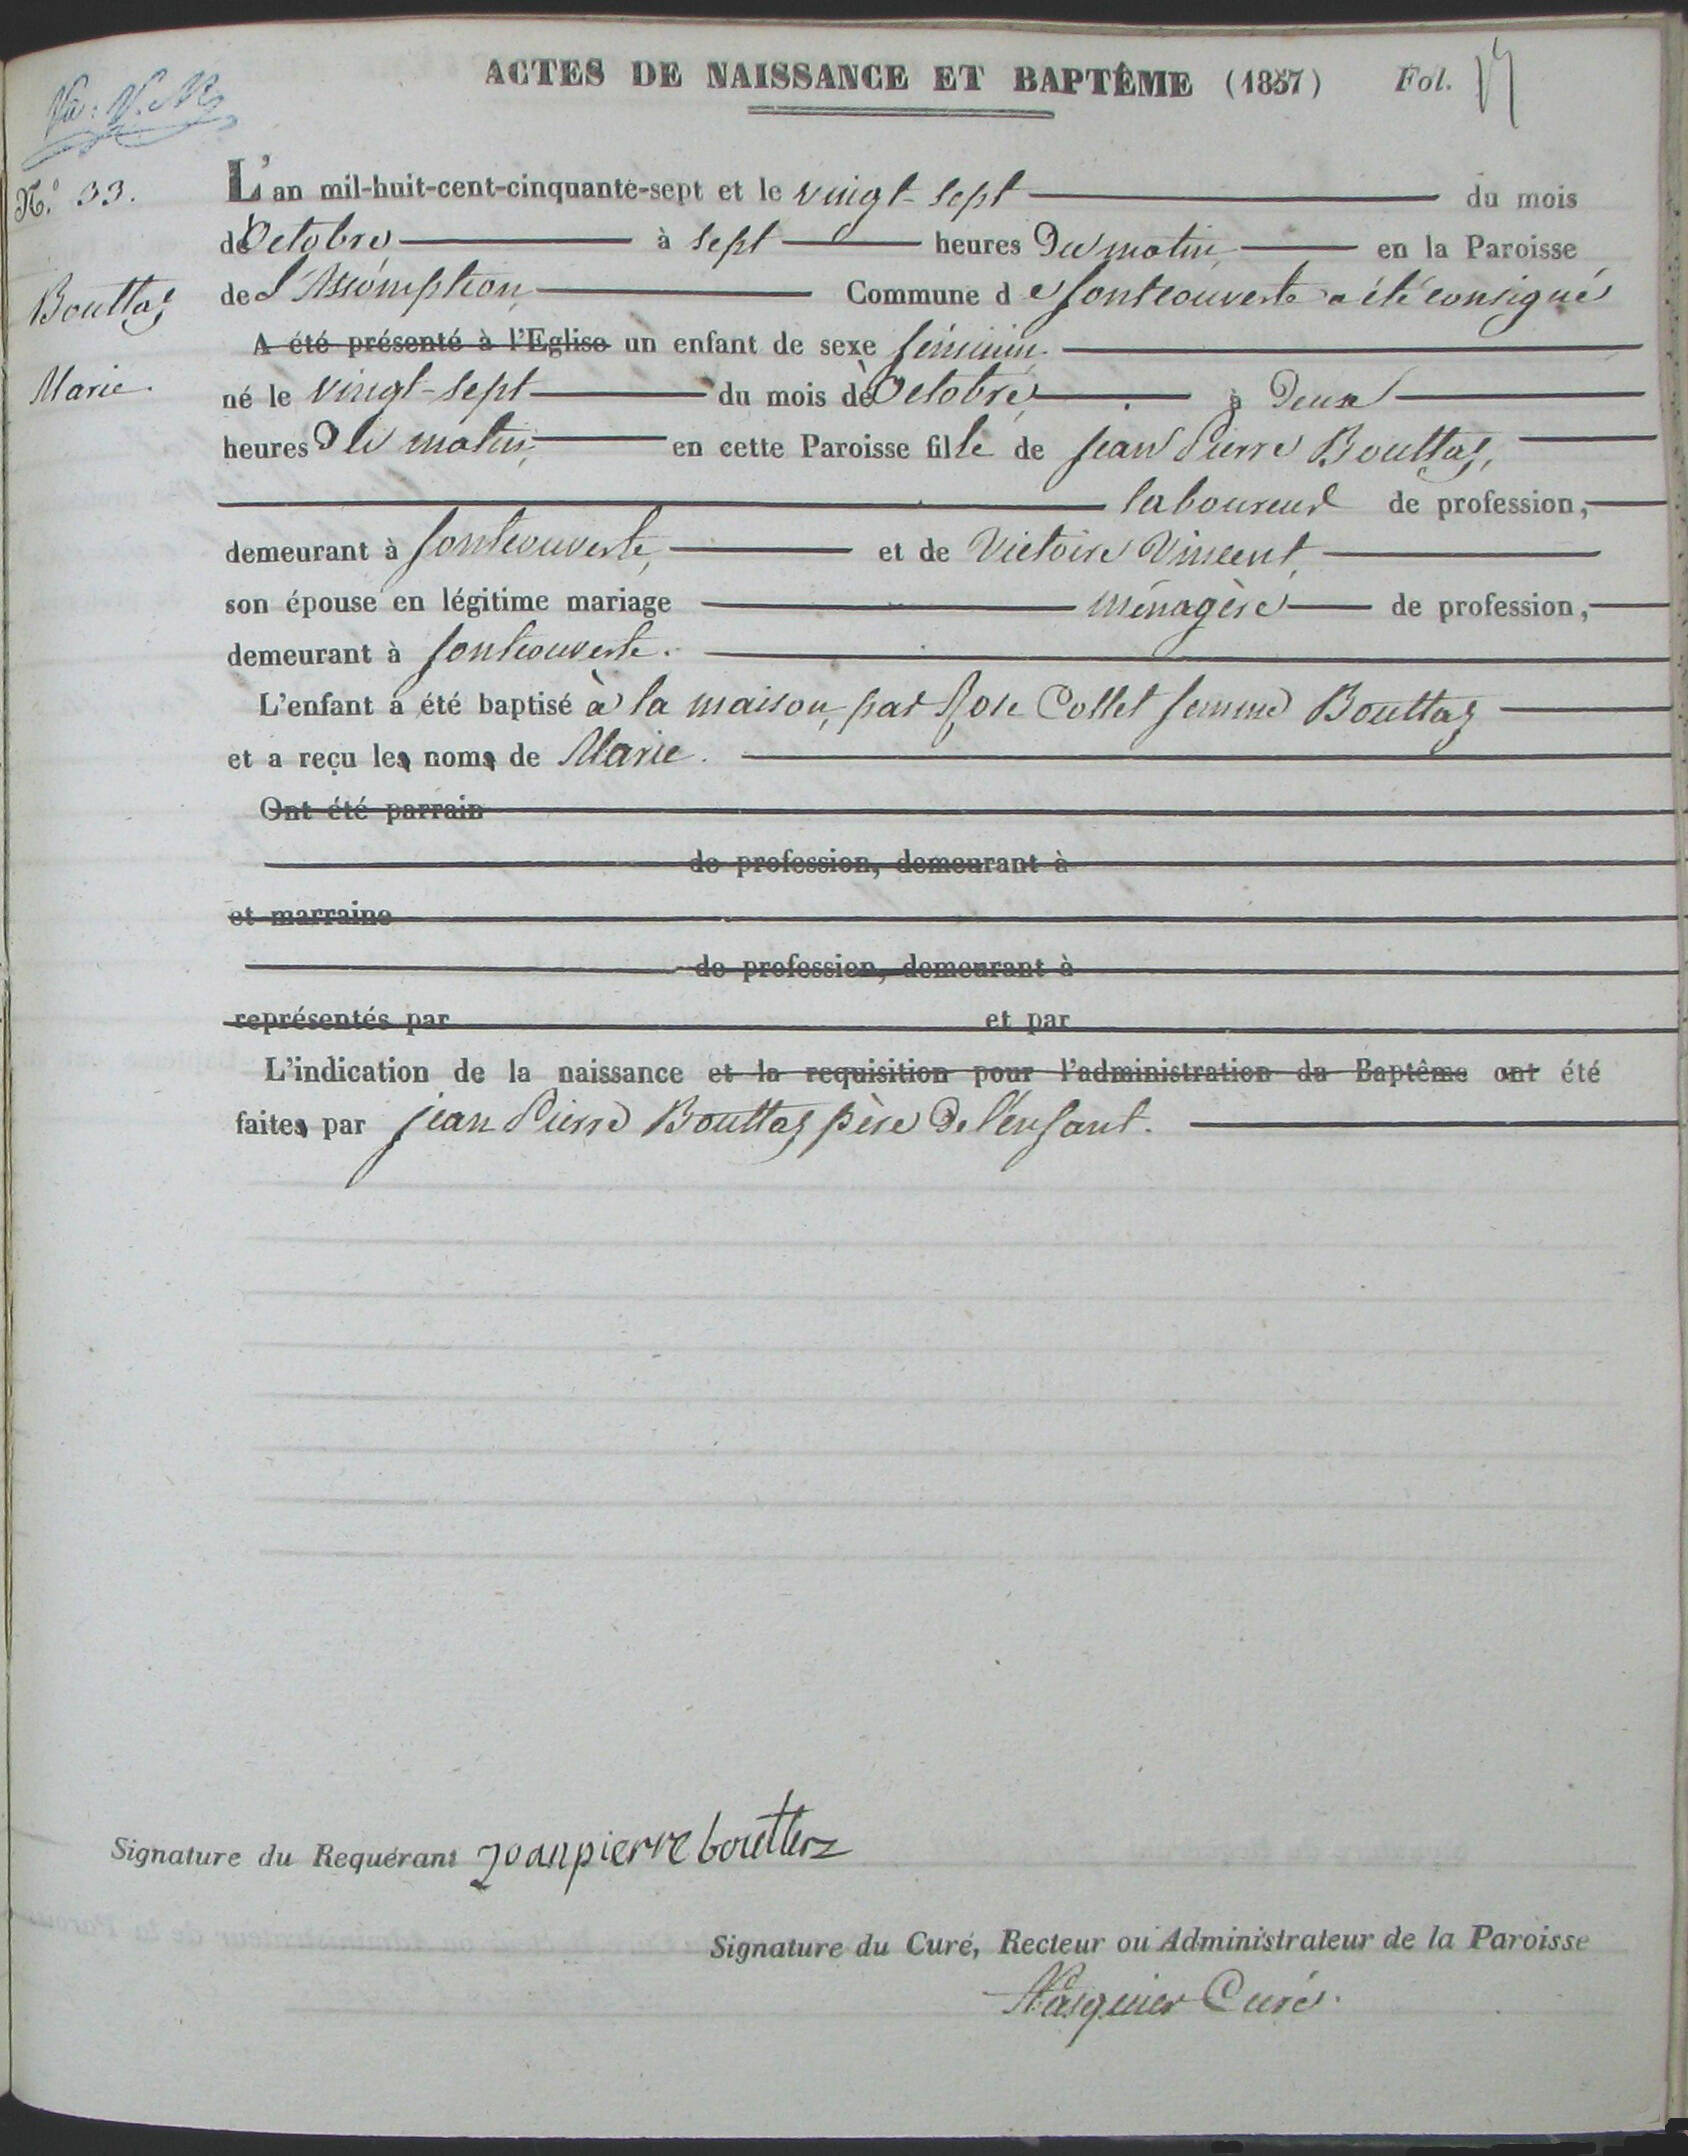 ACTES DE NAISSANCE ET BAPTÊME (1857) Fol. 17
N.° 33.
Bouttaz
Marie.
L'an mil-huit-cent-cinquante-sept et le vingt-sept du mois
d'Octobre à sept heures du matin en la Paroisse
de L'Assomption Commune de fontcouverte a été consigné
A été présenté à l'Eglise un enfant de sexe féminin.
né le vingt-sept du mois d'Octobre à deux
heures du matin, en cette Paroisse fille de jean Pierre Bouttaz,
laboureur de profession,
demeurant à fontcouverte, et de Victoire Vincent,
son épouse en légitime mariage ménagère de profession,
demeurant à fontcouverte.
L'enfant a été baptisé à la maison, par Rose Collet femme Bouttaz
et a reçu les noms de Marie.
Ont été parrain
de profession, demeurant à
et marraine
de profession, demeurant à
représentés par et par
L'indication de la naissance et la requisition pour l'administration du Baptême ont été
faites par jean Pierre Bouttaz père de l'enfant.
Signature du Requérant joanpierre bouttaz
Signature du Curé, Recteur ou Administrateur de la Paroisse
Pasquier Curé.